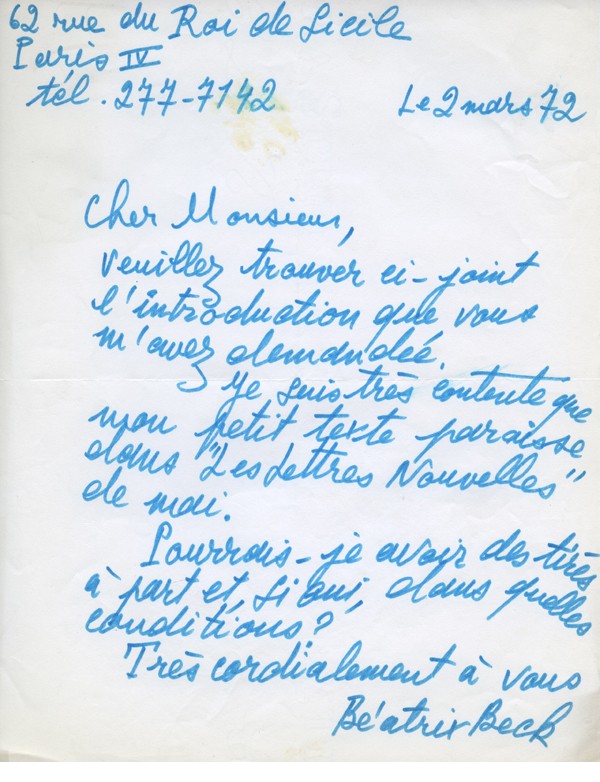 62 rue du Roi de Sicile
Paris IV
tél. 277-7142
Le 2 mars 72
Cher Monsieur,
Veuillez trouver ci-joint
l'introduction que vous
m'avez demandée.
Je suis très contente que
mon petit texte paraisse
dans "Les Lettres Nouvelles"
de mai.
Pourrais-je avoir des tirés
à part et, si oui, dans quelles
conditions?
Très cordialement à vous
Béatrix Beck